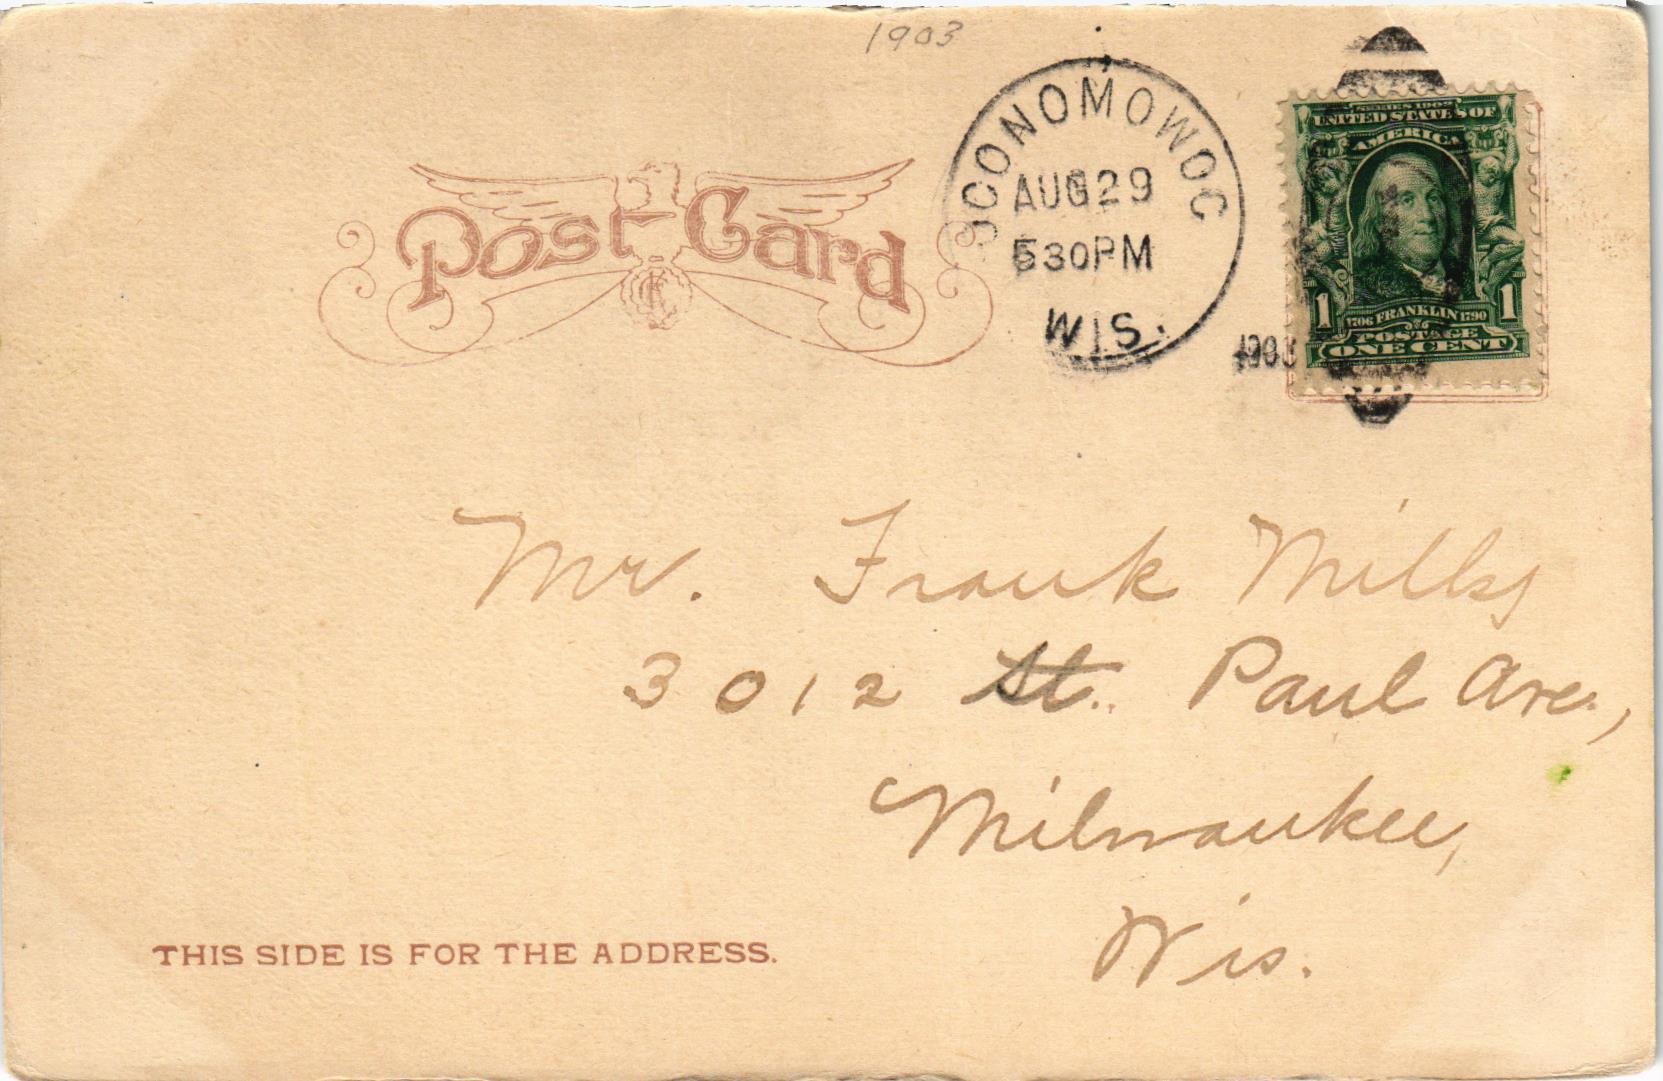 1903
OCONOMOWOC
AUG 29
530PM
WIS.
1903
SERIES 1902
UNITED STATES OF
AMERICA
1 1
1706 FRANKLIN 1790
POSTAGE
ONE CENT
Post Card
Mr. Frank Mills,
3012 St. Paul Ave.,
Milwaukee,
Wis.
THIS SIDE IS FOR THE ADDRESS.